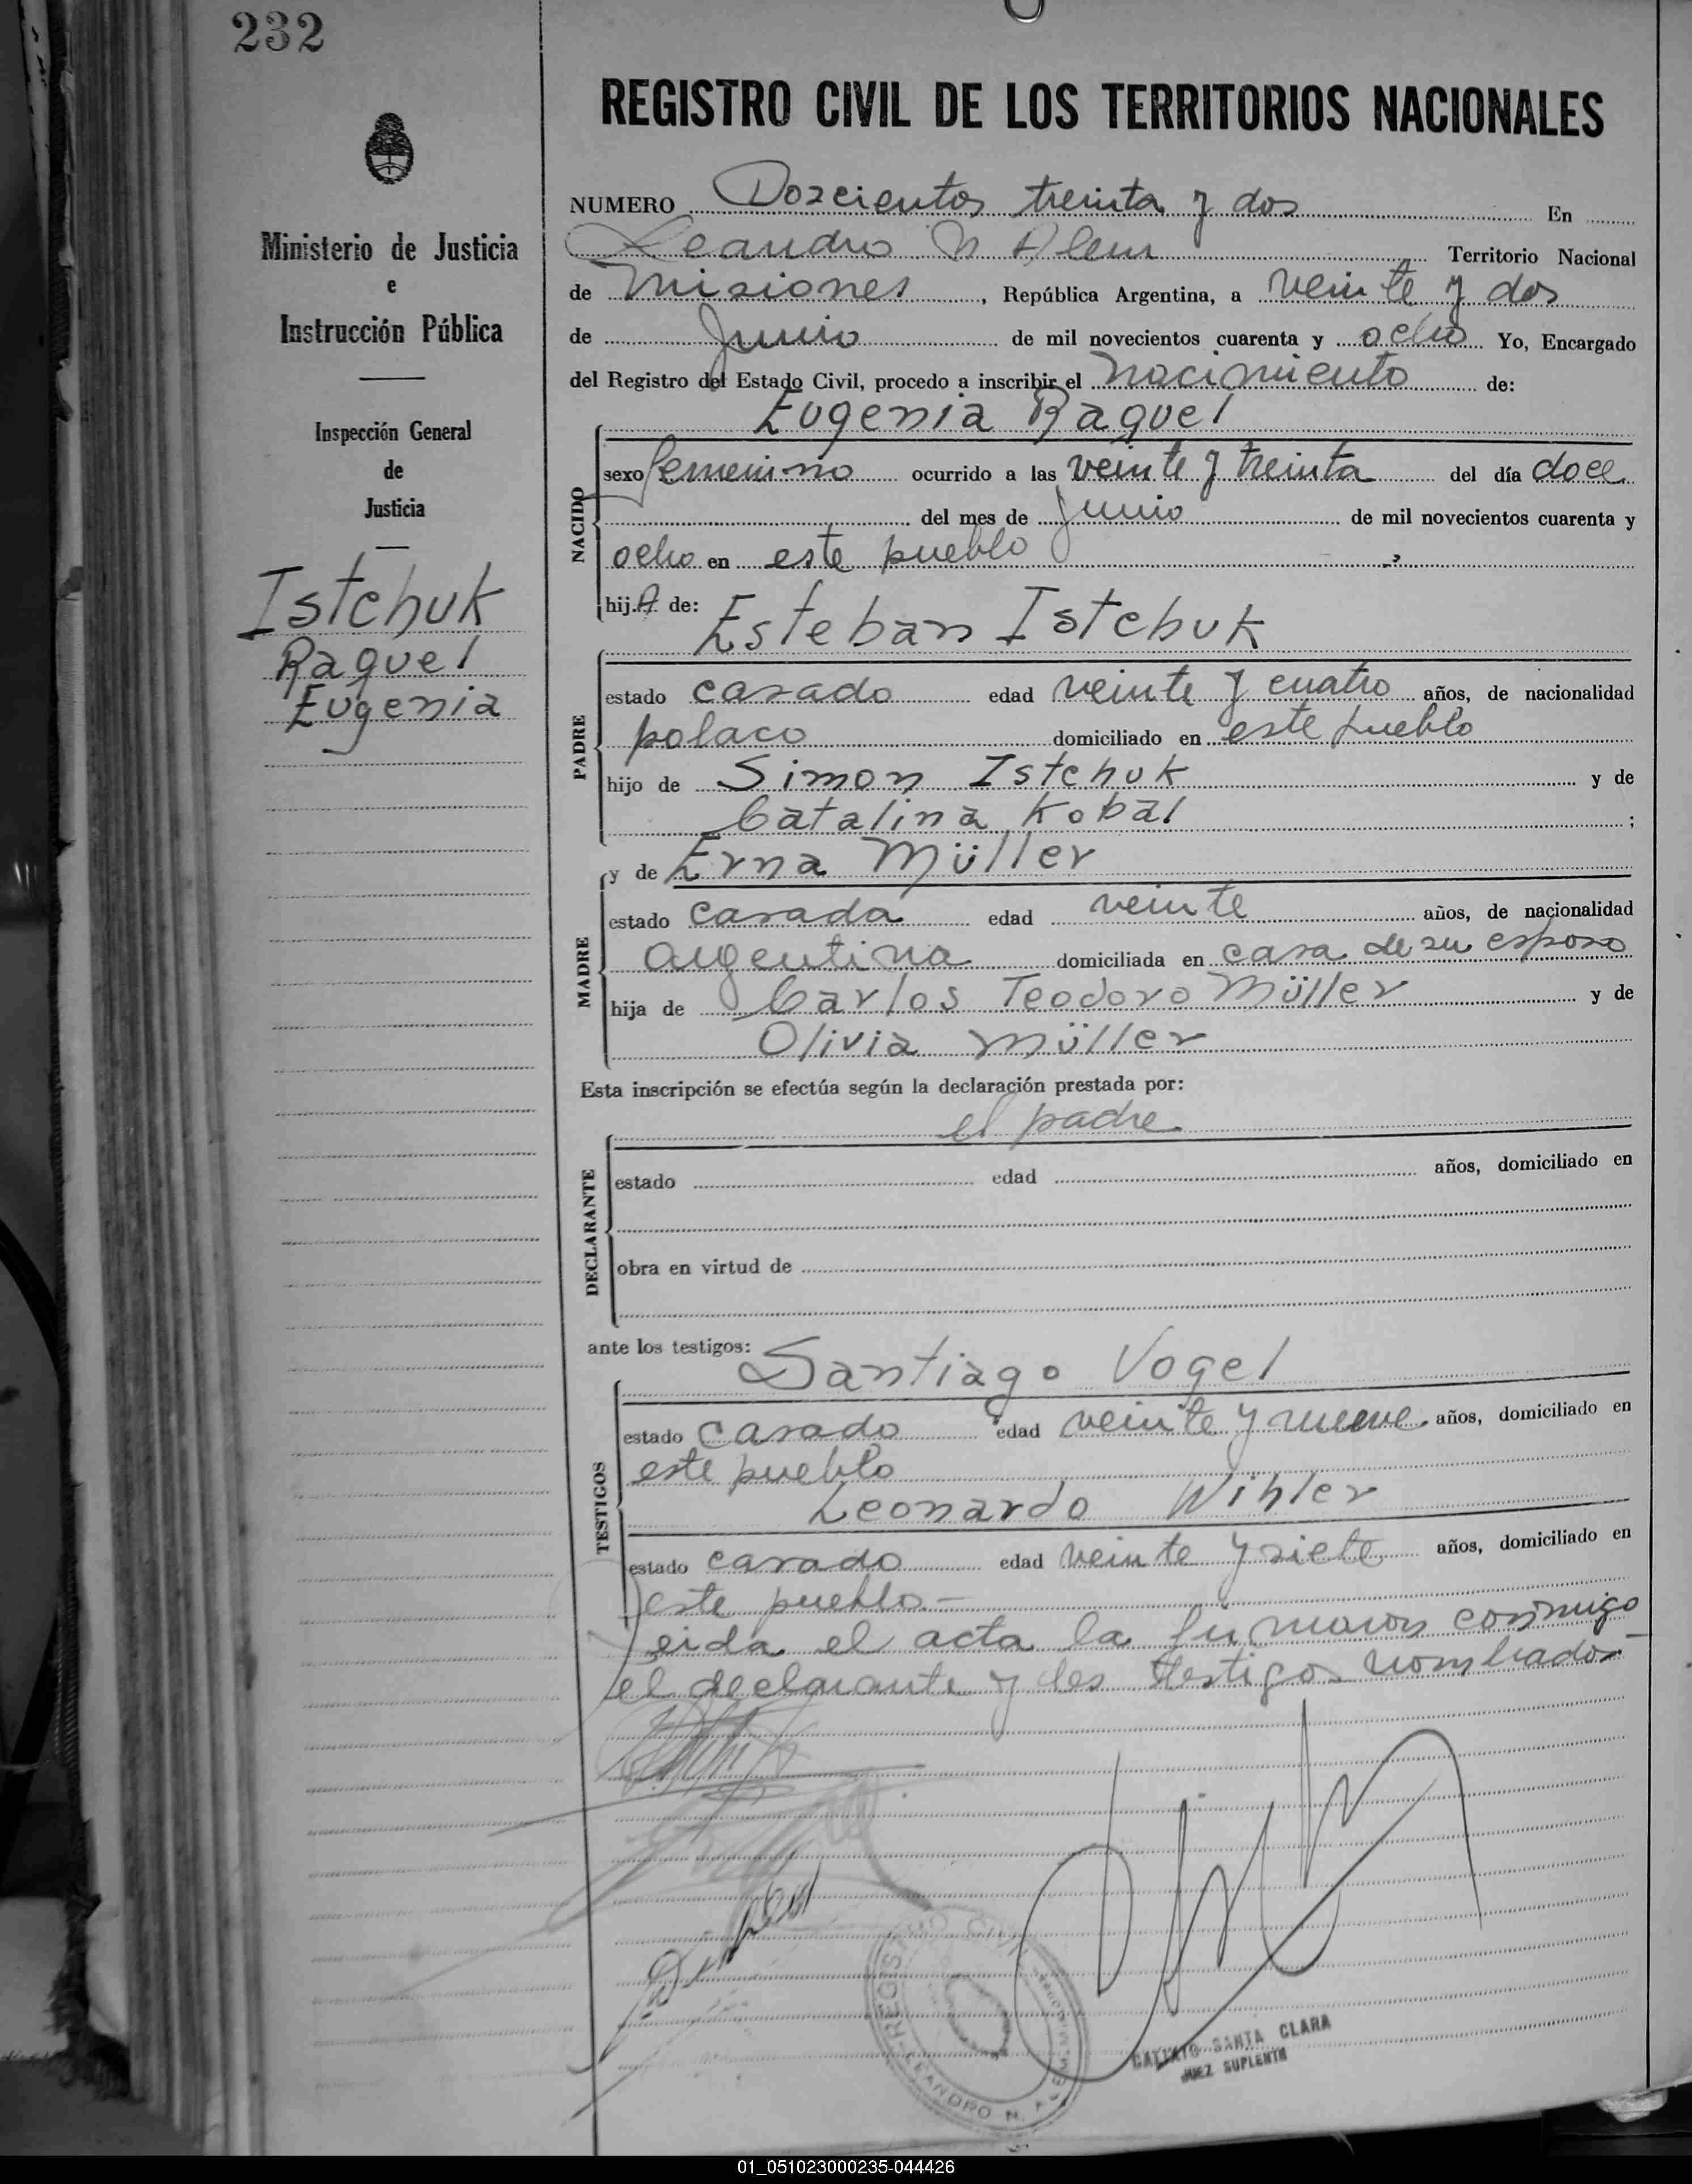 232
Ministerio de Justicia
e
Instrucción Pública
Inspección General
de
Justicia
Istchuk
Raquel
Eugenia
REGISTRO CIVIL DE LOS TERRITORIOS NACIONALES
NUMERO Doscientos treinta y dos En
Leandro N Alem Territorio Nacional
de Misiones, República Argentina, a veinte y dos
de Junio de mil novecientos cuarenta y ocho Yo, Encargado
del Registro del Estado Civil, procedo a inscribir el nacimiento de:
Eugenia Raquel
NACIDO
sexo femenino ocurrido a las veinte y treinta del día doce
del mes de Junio de mil novecientos cuarenta y
ocho en este pueblo ,
hijA de: Esteban Istchuk
PADRE
estado casado edad veinte y cuatro años, de nacionalidad
polaco domiciliado en este pueblo
hijo de Simon Istchuk y de
Catalina Kobal ;
y de Erna Müller
MADRE
estado casada edad veinte años, de nacionalidad
argentina domiciliada en casa de su esposo
hija de Carlos Teodoro Müller y de
Olivia Müller
Esta inscripción se efectúa según la declaración prestada por:
el padre
DECLARANTE
estado edad años, domiciliado en
obra en virtud de
ante los testigos: Santiago Vogel
TESTIGOS
estado casado edad veinte y nueve años, domiciliado en
este pueblo
Leonardo Wihler
estado casado edad veinte y siete años, domiciliado en
este pueblo.-
Leida el acta la firmaron conmigo
el declarante y los testigos nombrados-
REGISTRO CIVIL
LEANDRO N. ALEM
SANTA CLARA
JUEZ SUPLENTE
01_051023000235-044426